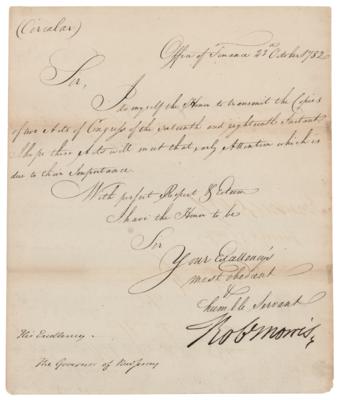 (Circular)
Office of Finance 23d October 1782
Sir,
I do myself the Honor to transmit the Copies
of two Acts of Congress of the sixteenth and eighteenth Instant
I hope these Acts will meet that early Attention which is
due to their Importance.
With perfect Respect & Esteem
I have the Honor to be
Sir
Your Excellency's
most obedient
&
humble Servant
Robt Morris
His Excellency
The Governor of New Jersey